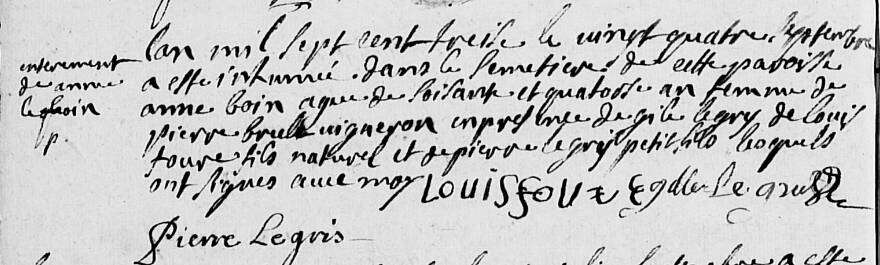 Lan mil sept cent treise le vingt quatre septembre
a este inhumée dans le semetiere de cette paroisse
anne boin agee de soisante et quatosse an femme de
pierre brule vigneron en presance de gile legry de louis
foure fils naturel et de pierre legris petit fils lesquels
ont signes avec moy LOUIS FOURE
Pierre Legris
enterement
de anne
boin
p.